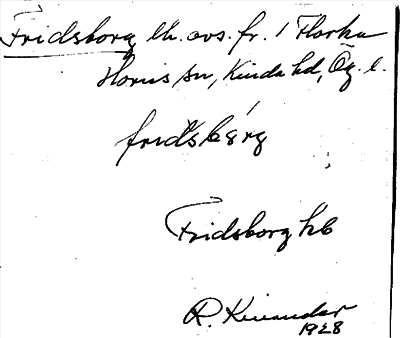 Fridsborg lh. avs. fr. 1 Horka
Horns sn, Kinda hd, Ög. l.
fridsbårg
Fridsborg hb
R. Kinander
1928